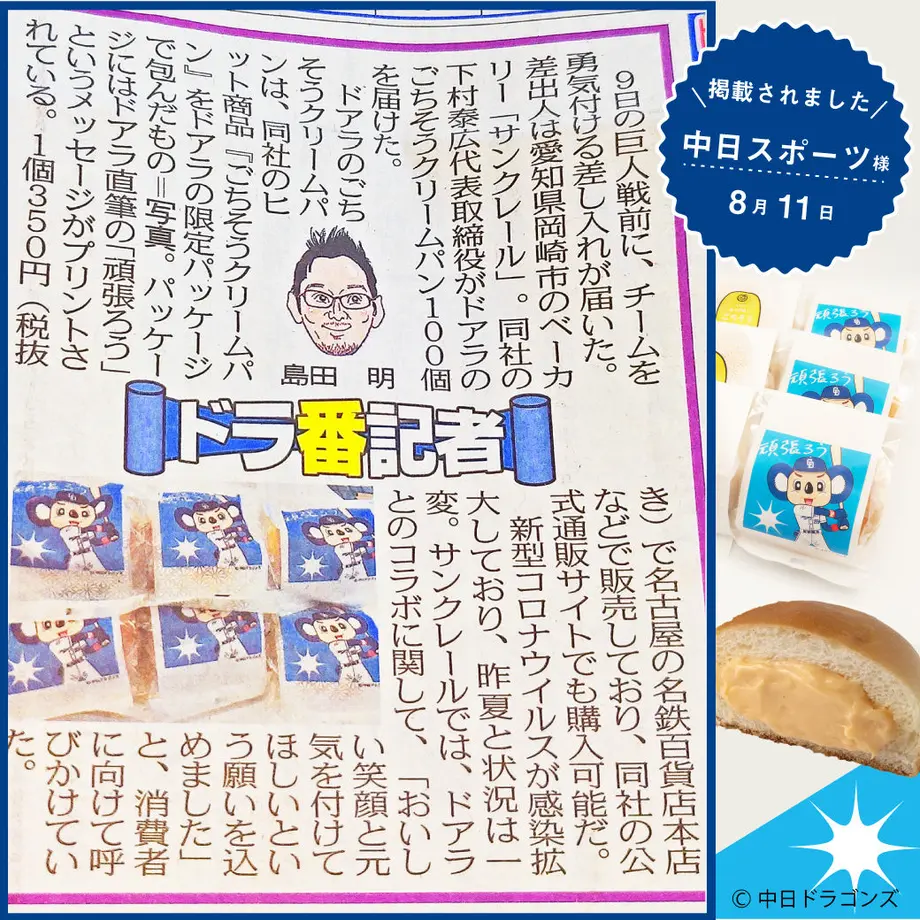 9日の巨人戦前に、チームを
勇気付ける差し入れが届いた。
差出人は愛知県岡崎市のベーカ
リー「サンクレール」。同社の
下村泰広代表取締役がドアラの
ごちそうクリームパン100個
を届けた。
ドアラのごち
そうクリームパ
ンは、同社のヒ
ット商品『ごちそうクリームパ
ン』をドアラの限定パッケージ
で包んだもの=写真。パッケー
ジにはドアラ直筆の「頑張ろう」
というメッセージがプリントさ
れている。1個350円(税抜
島田 明
ドラ番記者
き)で名古屋の名鉄百貨店本店
などで販売しており、同社の公
式通販サイトでも購入可能だ。
新型コロナウイルスが感染拡
大しており、昨夏と状況は一
変。サンクレールでは、ドアラ
とのコラボに関して、「おいし
い笑顔と元
気を付けて
ほしいとい
う願いを込
めました」
と、消費者
に向けて呼
びかけてい
た。
掲載されました
中日スポーツ様
8月11日
頑張ろう
頑張ろう
頑張ろう
© 中日ドラゴンズ